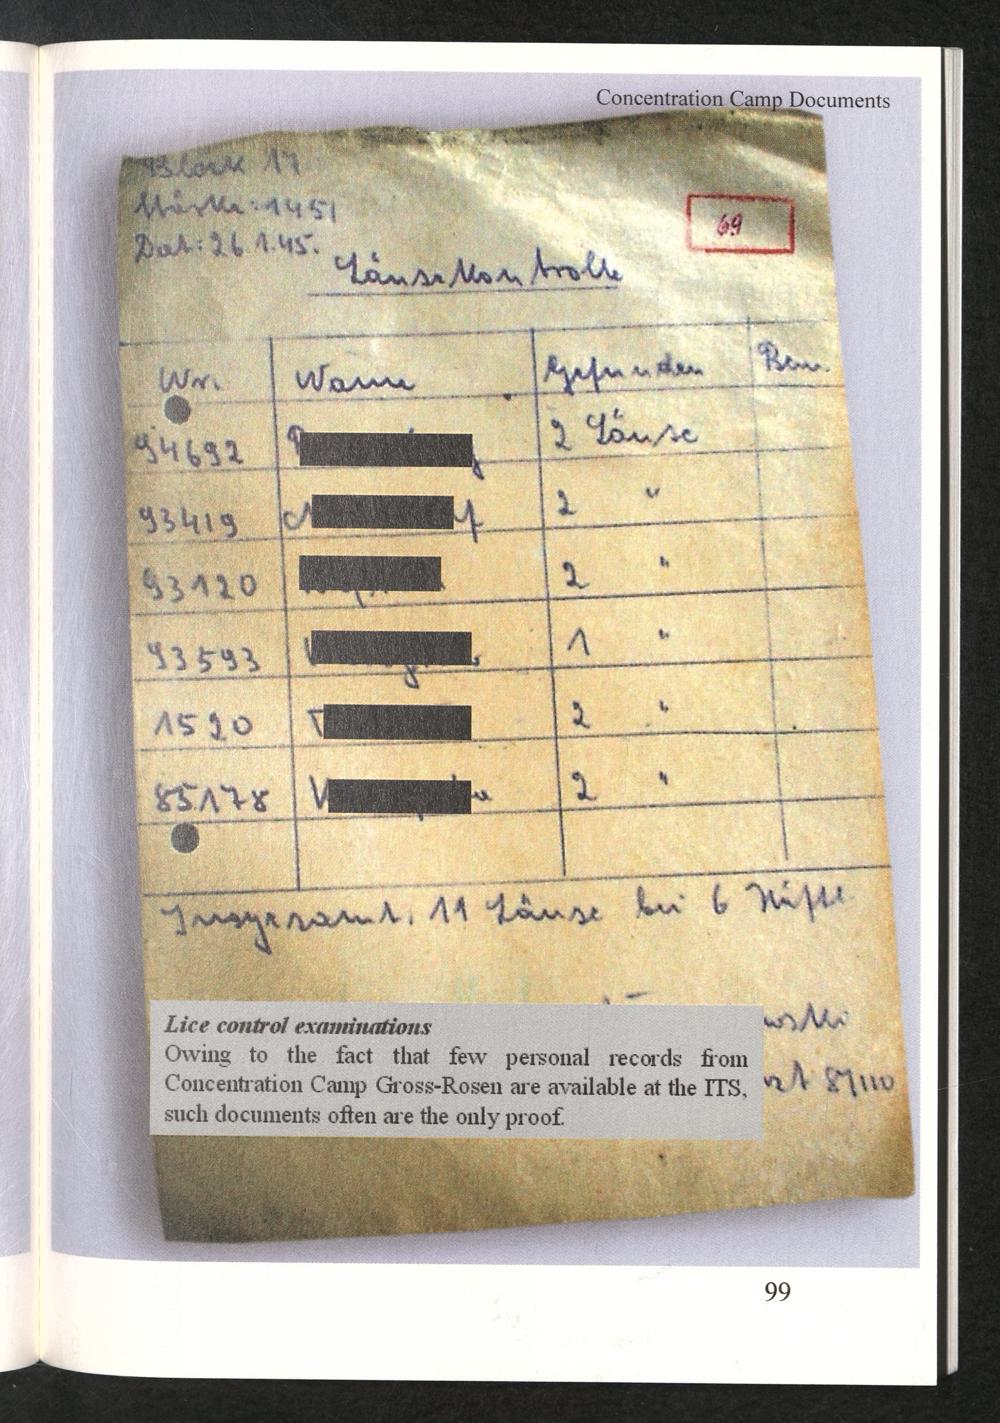 Concentration Camp Documents
Block 17
Stärke: 1451
Dat: 26.1.45.
69
Läusekontrolle
Nr. Name Gefunden Bem.
94692 2 Läuse
93419 2 "
93120 2 "
93593 1 "
1520 2 "
85178 2 "
Insgesamt. 11 Läuse bei 6 Häftl.
Lice control examinations
Owing to the fact that few personal records from
Concentration Camp Gross-Rosen are available at the ITS,
such documents often are the only proof.
87110
99